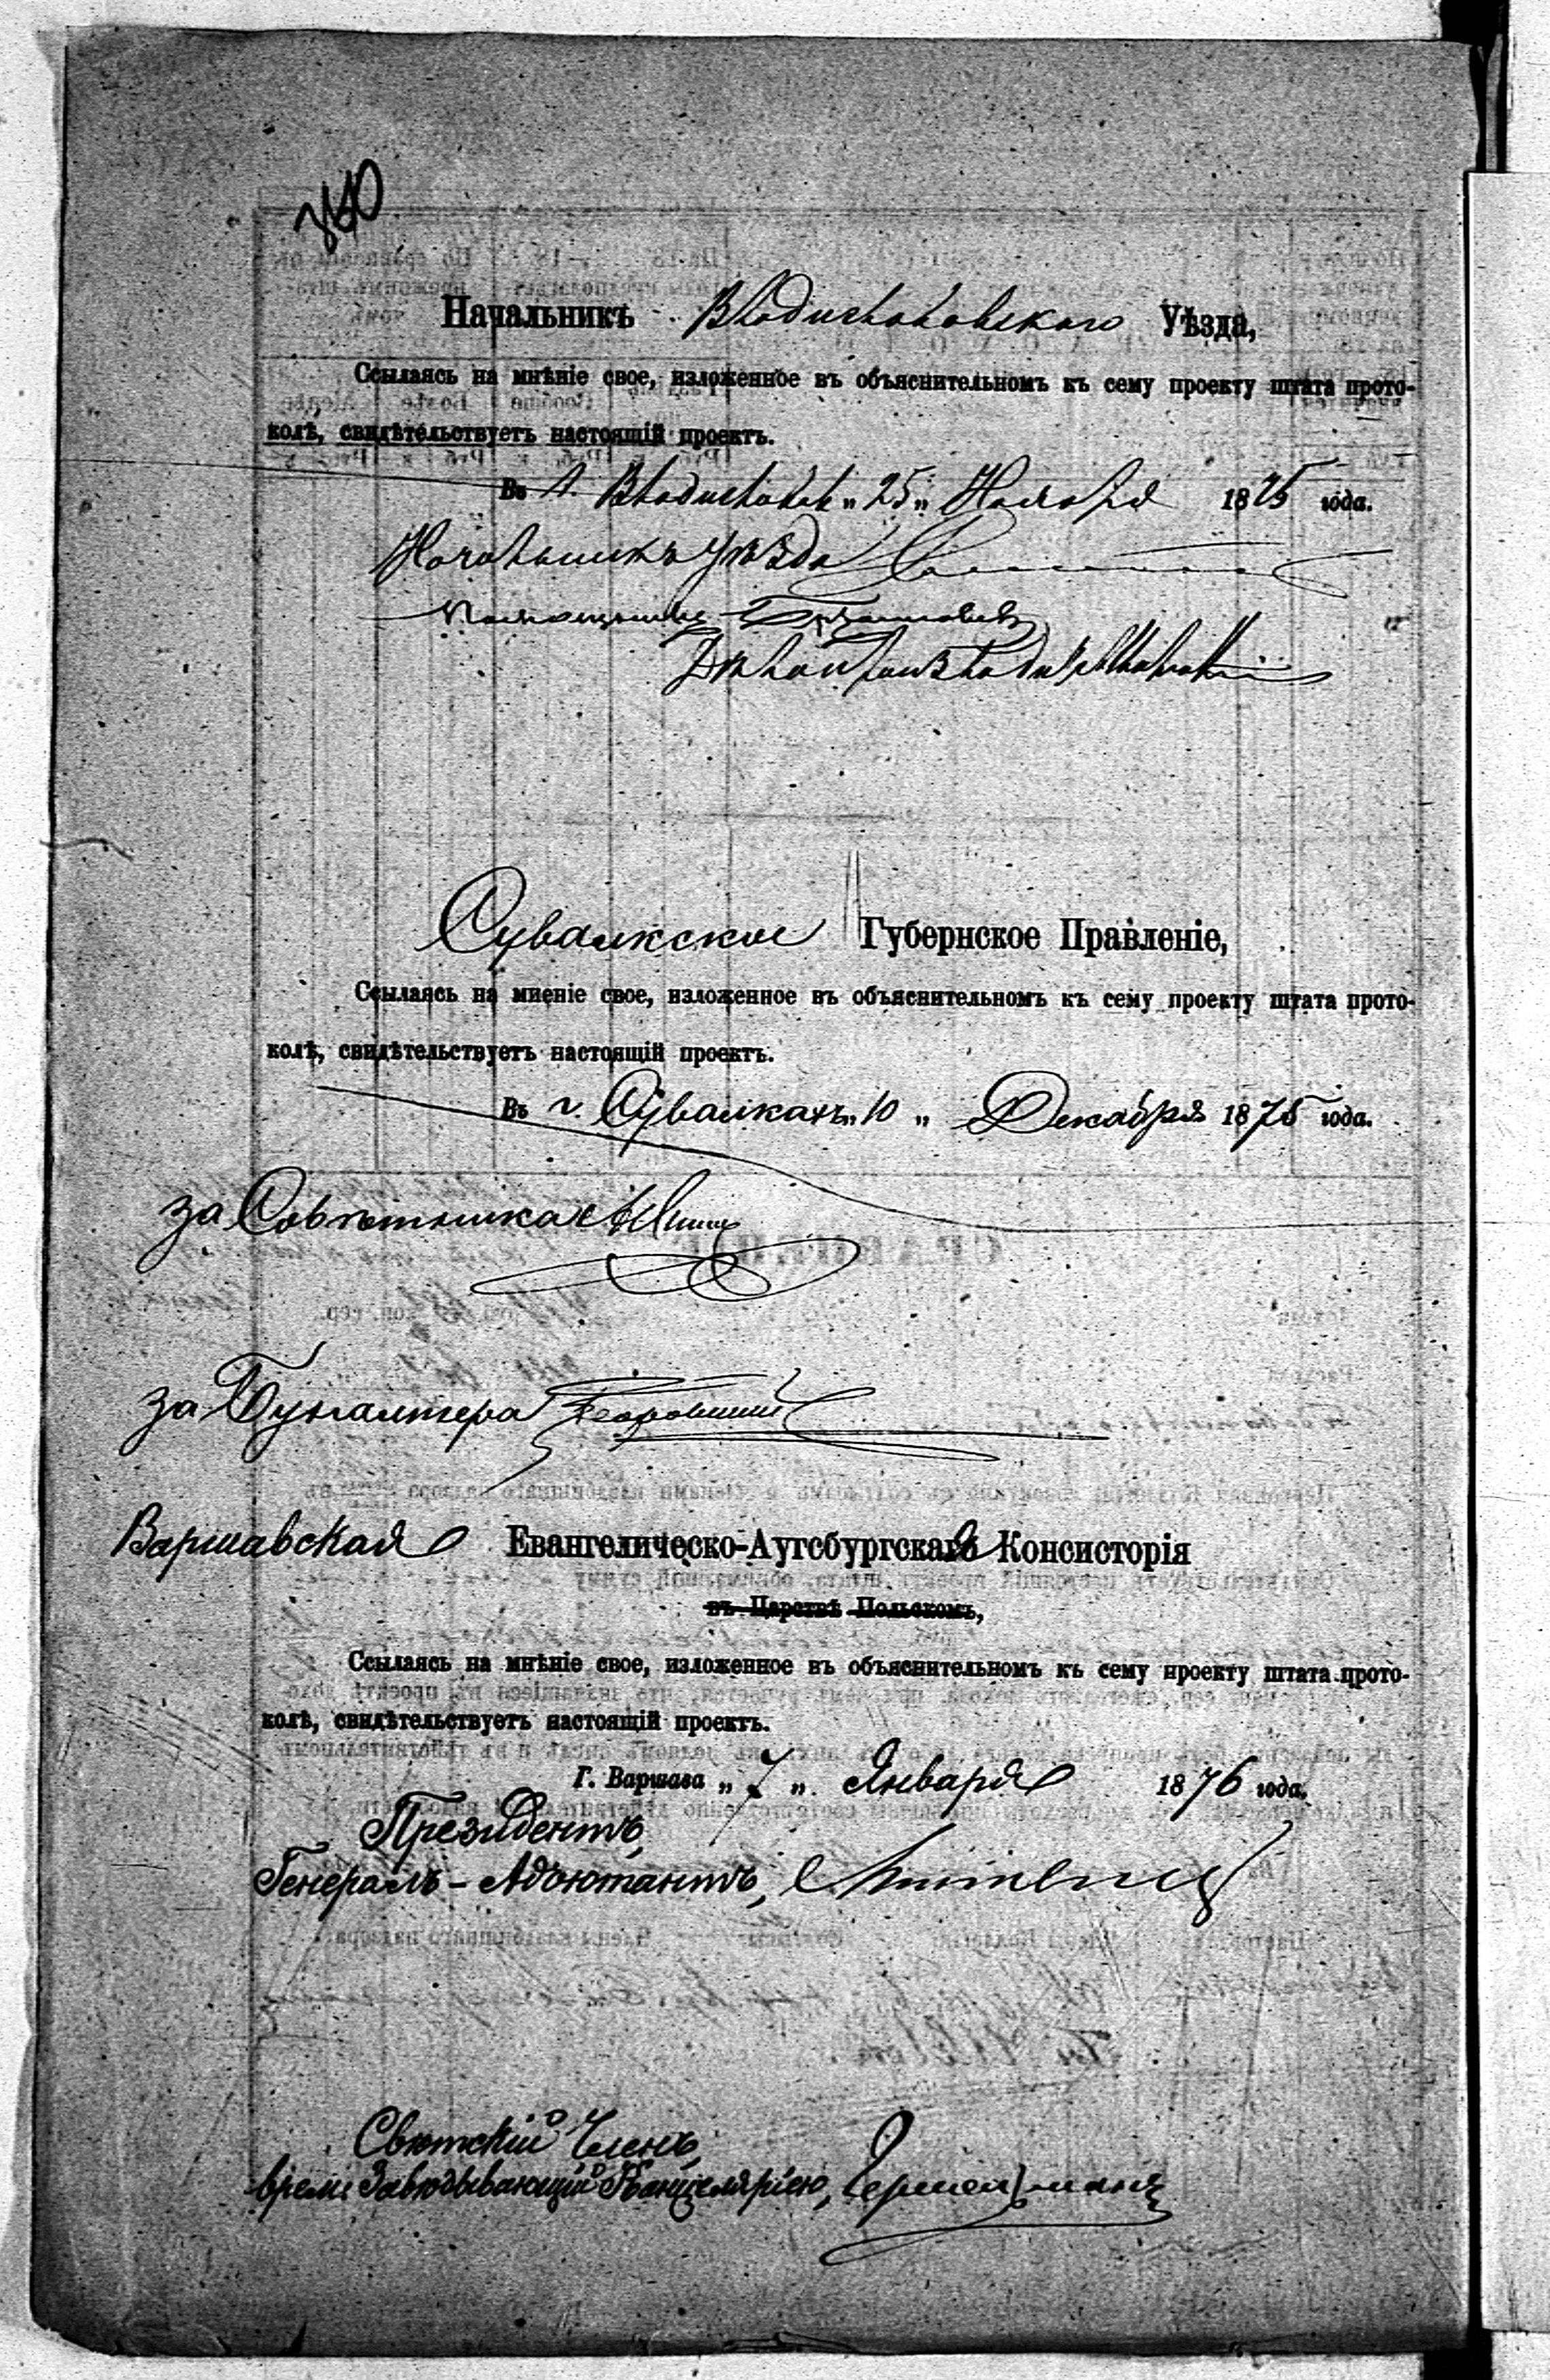 340
Начальникъ Владиславовскаго Уѣзда,
Ссылаясь на мнѣніе свое, изложенное въ объяснительномъ къ сему проекту штата прото-
колѣ, свидѣтельствуетъ настоящій проектъ.
Въ г. Владиславовѣ „25„ Ноября 1875 года.
Начальникъ уѣзда
Помощникъ
Дѣлопроизводитель
Сувалкское Губернское Правленіе,
Ссылаясь на мненіе свое, изложенное въ объяснительномъ къ сему проекту штата прото-
колѣ, свидѣтельствуетъ настоящій проектъ.
Въ г. Сувалкахъ „10„ Декабря 1875 года.
за Совѣтника
за Бухгалтера
Варшавская Евангелическо-Аугсбургская Консисторія
въ Царствѣ Польскомъ,
Ссылаясь на мнѣніе свое, изложенное въ объяснительномъ къ сему проекту штата прото-
колѣ, свидѣтельствуетъ настоящій проектъ.
Г. Варшава „7„ Января 1876 года.
Президентъ,
Генералъ-Адъютантъ,
Свѣтскій Членъ,
врем. Завѣдывающій Канцеляріею,